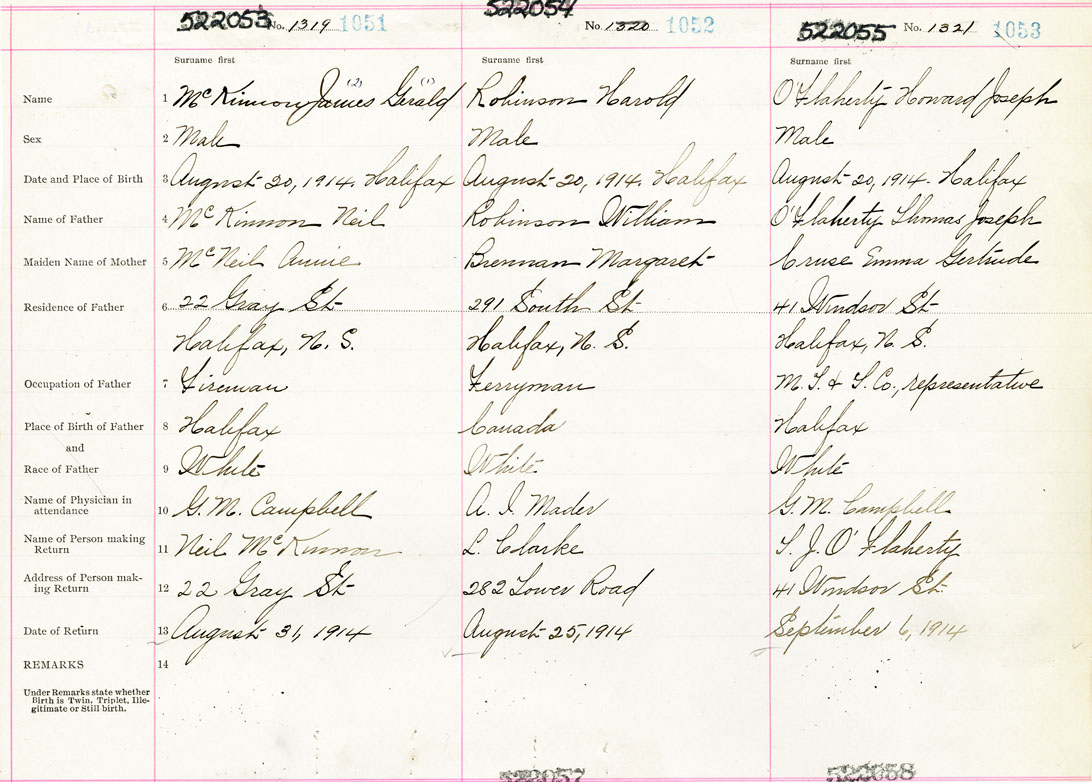 522053 No. 1319 1051 522054 No. 1320 1052 522055 No. 1321 1053
Surname first Surname first Surname first
Name 1 McKinnon James (2) Gerald (1) Robinson Harold O'Flaherty Howard Joseph
Sex 2 Male Male Male
Date and Place of Birth 3 August 20, 1914. Halifax August 20, 1914. Halifax August 20, 1914. Halifax
Name of Father 4 McKinnon Neil Robinson William O'Flaherty Thomas Joseph
Maiden Name of Mother 5 McNeil Annie Brennan Margaret Cruse Emma Gertrude
Residence of Father 6 22 Gray St 291 South St 41 Windsor St
Halifax, N. S. Halifax, N. S. Halifax, N. S.
Occupation of Father 7 Fireman Ferryman M. T. & T. Co., representative
Place of Birth of Father 8 Halifax Canada Halifax
and
Race of Father 9 White White White
Name of Physician in
attendance 10 G. M. Campbell A. I. Mader G. M. Campbell
Name of Person making
Return 11 Neil McKinnon L. Clarke T. J. O'Flaherty
Address of Person mak-
ing Return 12 22 Gray St 282 Lower Road 41 Windsor St.
Date of Return 13 August 31, 1914 August 25, 1914 September 6, 1914
REMARKS 14
Under Remarks state whether
Birth is Twin, Triplet, Ille-
gitimate or Still birth.
522057 522058